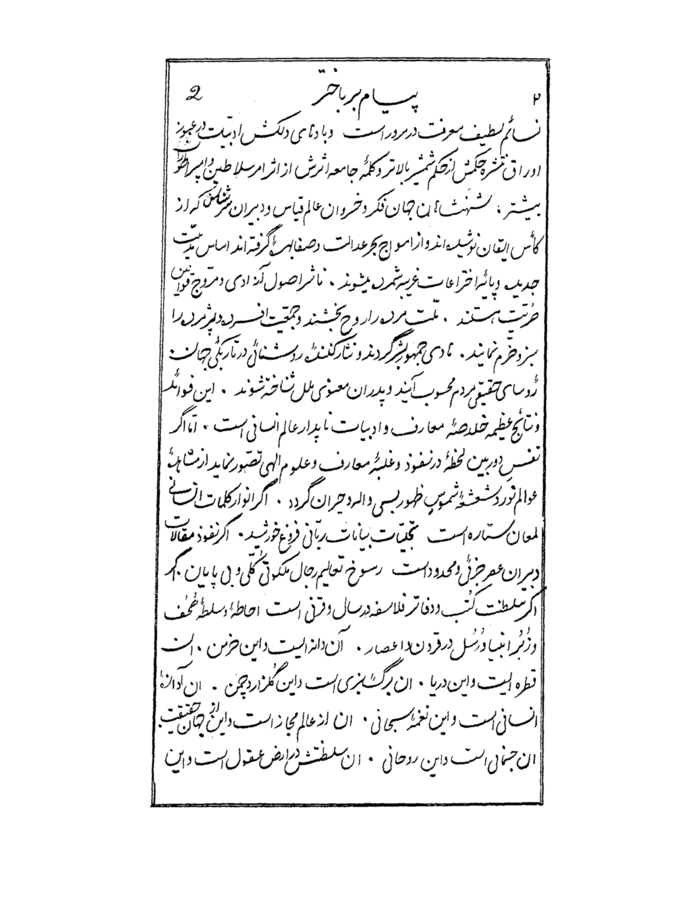 ۲ پیام بر باختر 2
نسائم لطیف معرفت در مرور است و بادهای دلکش ادبیّات در عبور
اوراق منتشره حکمش از حکم شمشیر بالاتر و کلمهٔ جامعه اثرش از اثر امر سلاطین و امپراطوران
بیشتر، شهنشاهان جهان فکر و خسروان عالم قیاس و دبیران سرشناس که از
کأس ایقان نوشیده‌اند و از امواج بحر عدالت و صفا بهره گرفته‌اند اساس مدنیّت
جدید و پایهٔ اختراعات غریبه شمرده میشوند . ناشر اصول آزادی و مروّج قوانین
حرّیّت هستند . ملّت مرده را روح بخشند و جمعیّت افسرده و پژمرده را
سبز و خرّم نمایند . هادی جمهور بشر گردند و نثار کنندهٔ روشنائی در تاریکی جهان
رؤسای حقیقی مردم محسوب آیند و پدران معنوی ملل شناخته شوند . این فوائد
و نتائج عظیمه خلاصهٔ معارف و ادبیات ناپدار عالم انسانی است . امّا اگر
نفس دوربین لحظهٔ در نفوذ و غلبهٔ معارف و علوم الهی تصوّر نماید از مشاهدهٔ
عوالم نور و شعشعهٔ شموس ظهور بسی واله و حیران گردد . اگر انوار کلمات انسانی
لمعان ستاره است تجلّیات بیانات ربّانی فروغ خورشید . اگر نفوذ مقالات
دبیران عصر جزئی و محدود است رسوخ تعالیم رجال ملکوتی کلّی و بی پایان .
اگر سلطنت کتب و دفاتر فلاسفه در سال و قرنی است احاطه و سلطهٔ صُحُف
و زُبُر انبیا و رُسل در قرون و اعصار . آن دانه ایست و این خرمن . آن
قطره ایست و این دریا . ان برگ سبزی است و این گلزار و چمن . ان آوازهٔ
انسانی است و این نغمهٔ سبحانی . ان از عالم مجاز است و این از جهان حقیقت .
ان جسمانی است و این روحانی . ان سلطنتش در ارض عقول است و این